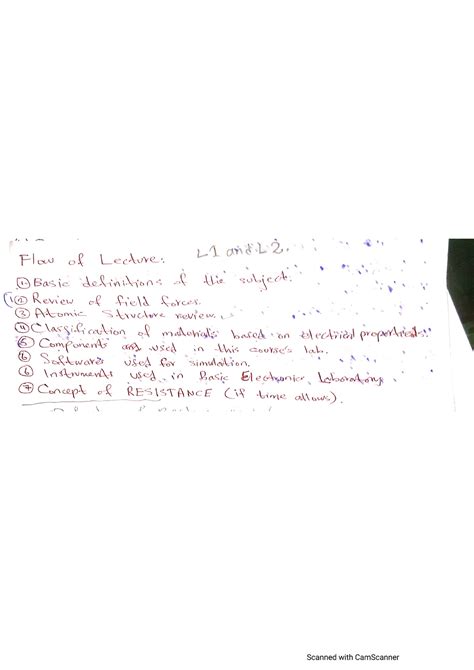 Flow of Lecture: L1 and L2.
① Basic definitions of the subject.
② Review of field forces.
③ Atomic Structure review.
④ Classification of materials based on electrical properties.
⑤ Components used in this course's lab.
⑥ Software used for simulation.
⑥ Instruments used in Basic Electronic Laboratory.
⑦ Concept of RESISTANCE (if time allows).
Scanned with CamScanner